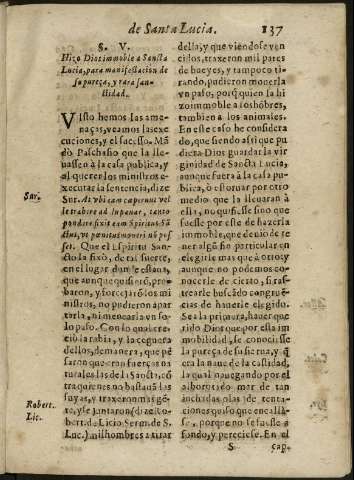 de Santa Lucia. 137
§. V.
Hizo Dios immoble a Sancta
Lucia, para manifestacion de
su pureza, y rara san-
ctidad.
VIsto hemos las ame-
naças, veamos las exe-
cuciones, y el sucesso. Mã
dò Paschasio que la lle-
uassen à la casa publica, y
al querer los ministros e-
xecutar la sentencia, dize
Sur. At vbi eam ceperunt vel
le trahere ad lupanar, tanto
pondere fixit eam Spiritus Sã
ctus, vt pœnitus moueri nõ pos
set. Que el Espiritu San-
cto la fixò, de tal suerte,
en el lugar donde estaua,
que aunque quisierõ, pro-
baron, y forcejarõ los mi
nistros, no pudieron apar
tarla, ni menearla vn so-
lo paso. Con lo qual cre-
ciò la rabia, y la ceguera
dellos, de manera, que pẽ
saron que eran fuerças na
turales las de la Sancta, cõ
tra quienes no bastauã las
suyas, y traxeron mas gẽ-
te, y se juntaron (dize Ro-
bert. de Licio Serm. de S.
Luc.) mil hombres a tirar
Sur.
Robert.
Lic.
della, y que viendose ven
cidos, traxeron mil pares
de bueyes, y tampoco ti-
rando, pudieron mouerla
vn paso, porq̃ quien la hi
zo immoble a los hõbres,
tambien a los animales.
En este caso he considera
do, que siendo assi que pu
diera Dios guardar la vir
ginidad de Sancta Lucia,
aunque fuera à la casa pu
blica, ò estoruar por otro
medio que la lleuaran à
ella, no quiso sino que
fuesse por este de hazerla
immoble, que de niò de te
ner algũ fin particular en
elegirle mas que à otro, y
aunque no podemos co-
nocerle de cierto, será
traerle buscado congruẽ
cias de hauerle elegido.
Sea la primera, hauer que
rido Dios que por esta im
mobilidad, se conociesse
la pureça de su sierua, y q̃
era la naue de la castidad,
la qual nauegando por el
alborotado mar de tan
anchadas olas de tenta-
ciones quiso que encallàs-
se, porque no se fuesse a
fondo, y pereciese. En el
S cap.